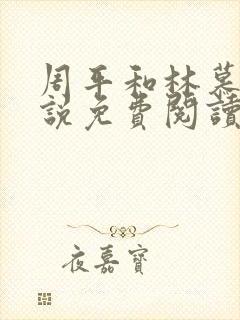 周平和林慕
說免費閱讀
夜嘉寶